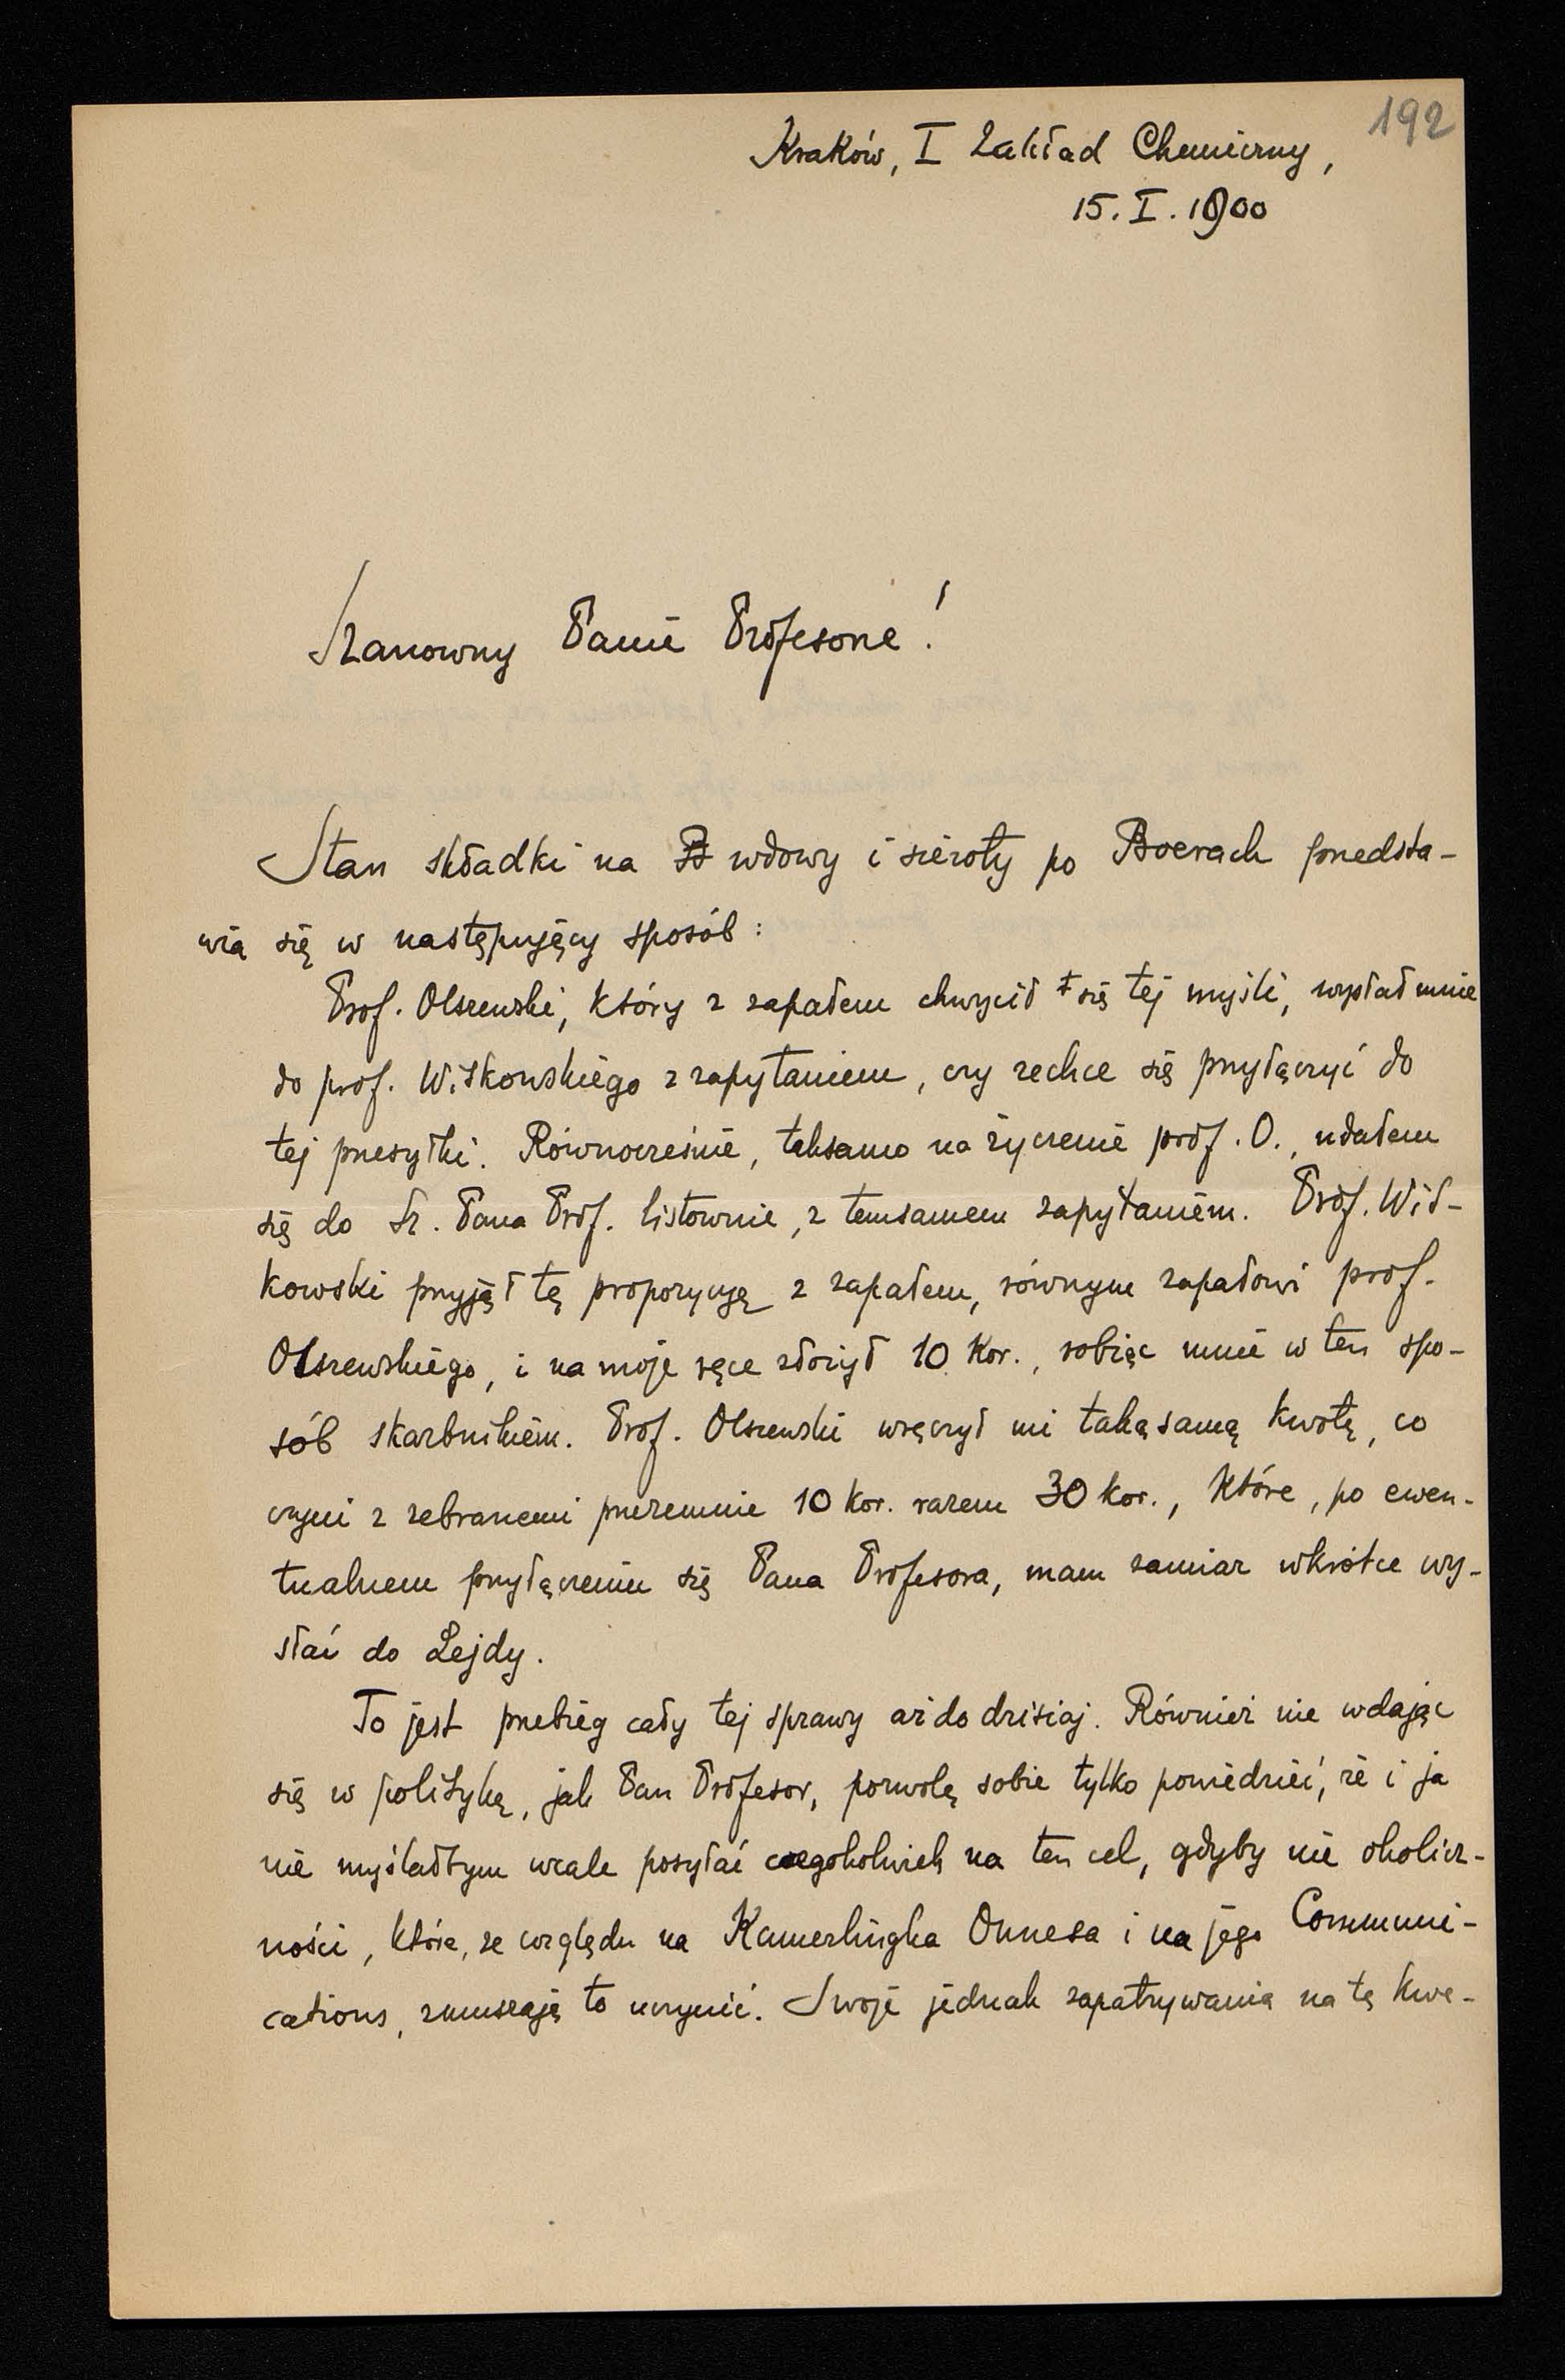 192
Kraków, I Zakład Chemiczny,
15. I. 1900
Szanowny Panie Profesorze!
Stan składki na wdowy i sieroty po Boerach przedsta-
wia się w następujący sposób:
Prof. Olszewski, który z zapałem chwycił się tej myśli, wysłał mnie
do prof. Witkowskiego z zapytaniem, czy zechce się przyłączyć do
tej przesyłki. Równocześnie, taksamo na życzenie prof. O., udałem
się do Sz. Pana Prof. listownie, z temsamem zapytaniem. Prof. Wit-
kowski przyjął tę propozycyę z zapałem, równym zapałowi prof.
Olszewskiego, i na moje ręce złożył 10 kor., robiąc mnie w ten spo-
sób skarbnikiem. Prof. Olszewski wręczył mi takąsamą kwotę, co
czyni z zebranemi przezemnie 10 kor. razem 30 kor., które, po ewen-
tualnem przyłączeniu się Pana Profesora, mam zamiar wkrótce wy-
słać do Lejdy.
To jest przebieg cały tej sprawy aż do dzisiaj. Również nie wdając
się w politykę, jak Pan Profesor, pozwolę sobie tylko powiedzieć, że i ja
nie myślałbym wcale posyłać czegokolwiek na ten cel, gdyby nie okolicz-
ności, które, ze względu na Kamerlingha Onnesa i na jego Communi-
cations, zmuszają to uczynić. Swoje jednak zapatrywania na tę kwe-